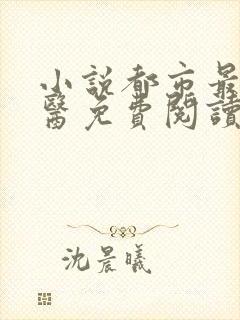 小說都市最
醫免費閱讀
沈晨曦